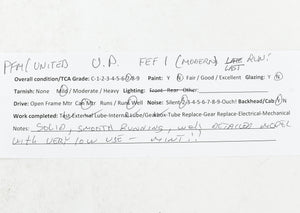 PFM/UNITED U.P. FEF 1 (MODERN) LATE RUN!
LAST
Overall condition/TCA Grade: C-1-2-3-4-5-6-7-8-9 Paint: Y N Fair / Good / Excellent Glazing: Y N
Tarnish: None Mild / Moderate / Heavy Lighting: Front Rear Other:
Drive: Open Frame Mtr Can Mtr Runs / Runs Well Noise: Silent 1-2-3-4-5-6-7-8-9-Ouch! Backhead/Cab Y/N
Work completed: Test-External Lube-Internal Lube/Gearbox-Tube Replace-Gear Replace-Electrical-Mechanical
Notes: SOLID, SMOOTH RUNNING, WELL DETAILED MODEL
WITH VERY LOW USE - MINT!!